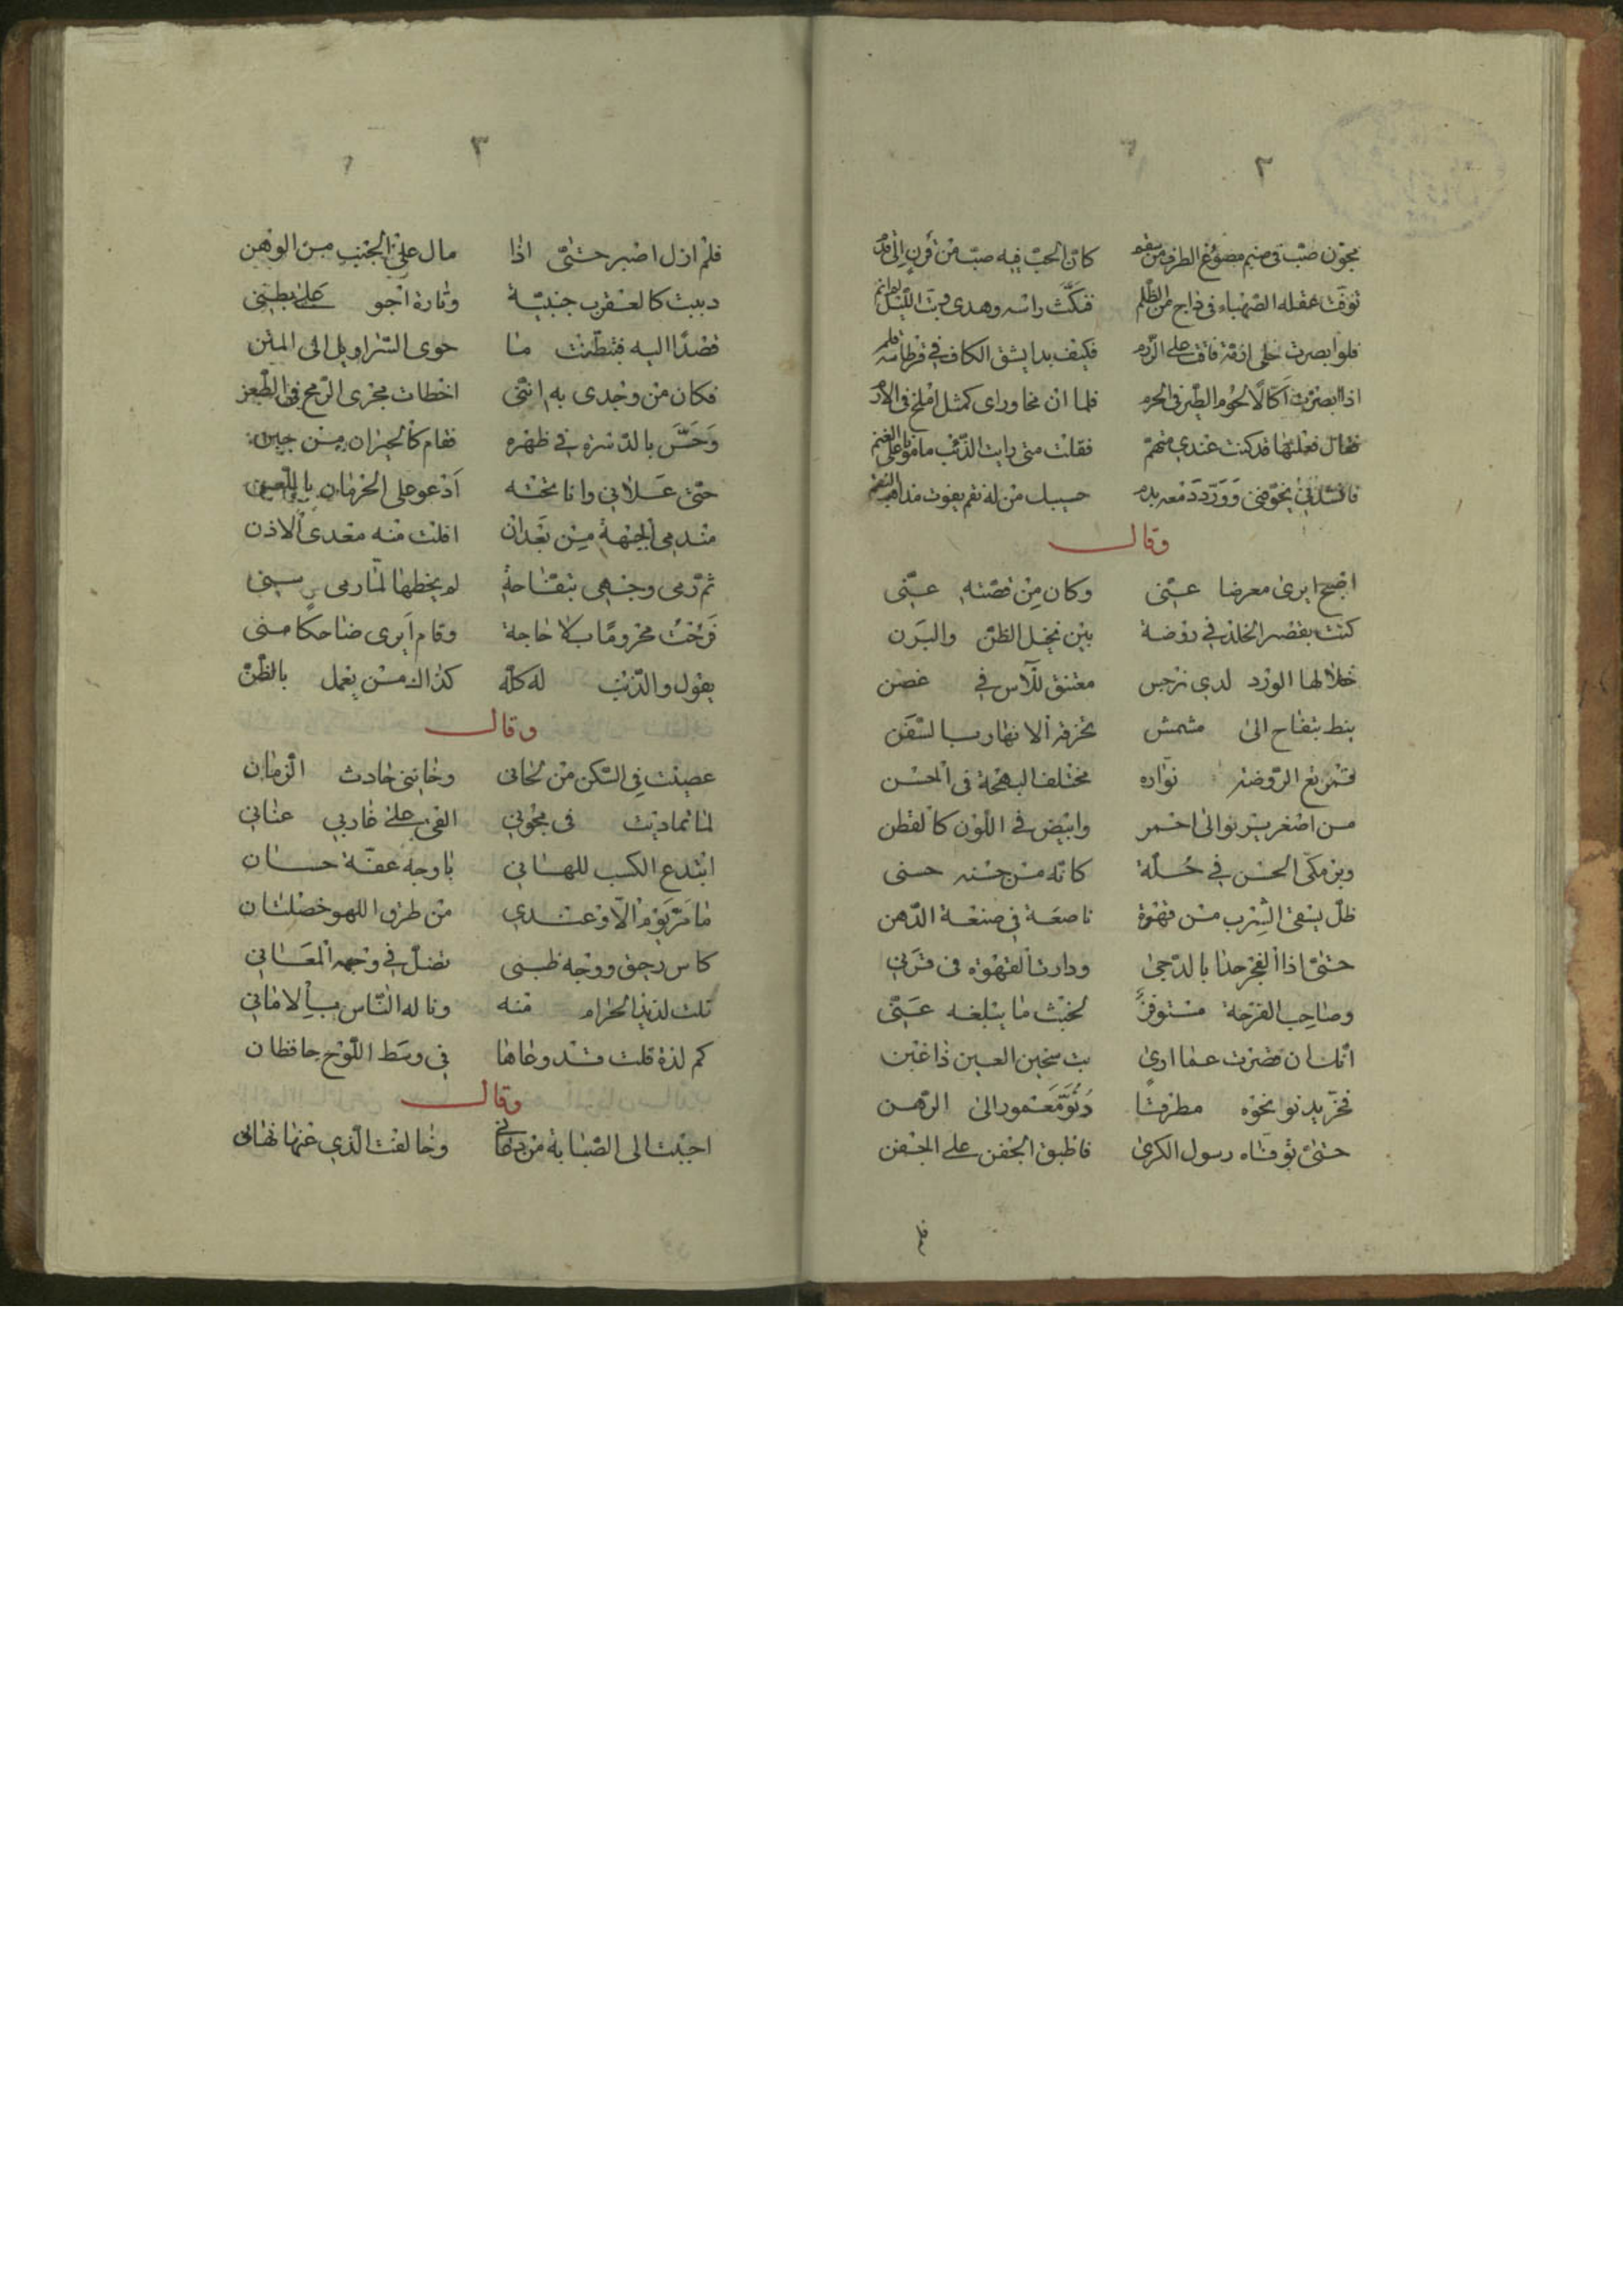 ٢
مجون صب فى صنم مصوغ الطرف من سقم كان الحب فيه صب من قرن الى قدم
توفت عقله الصهباء فى داج من الظلم فنكت راسه وهدى وبت الليل لم انم
فلو ابصرت خلى اذ فاق على الردم فكيف بدا يشق الكاف فى قرطاسه قلم
اذا ابصرت اكالا لحوم الطير فى الحرم فلما ان نحا وراى كمثل في الادم
فقال فعلتها قد كنت عندى متهم فقلت متى رايت الذئب مامونا على الغنم
فانشدنى يخوفنى وورد دمعه بدم حسبك من له نقم يفوت مذاهب النقم
وقال
اصبح ايرى معرضا عنى وكان من قصته عنى
كنت بقصر الخلد فى روضة بين نخل الظن والبرن
خلالها الورد لدى نرجس معتنق للآس في غصن
بنط بتفاح الى مشمش تخرقه الانهار بالسفن
نواره مختلف البهجة فى الحسن
من اصفر يرنو الى احمر وابيض في اللون كالقطن
الحسن في حلة كانه من جنه حسنى
ظل يسقى الشرب من قهوة ناصعة فى صنعة الدهن
حتى اذا الفجر حدا بالدجى ودارت القهوة فى قرنى
وصاحب الفرحة مستوفز لخبث ما يبلغه عنى
انك ان قصرت عما ارى بت سخين العين ذا غبن
فخر يدنو نحوه مطرقا دنو معمور الى الرهن
حتى توفاه رسول الكرى فاطبق الجفن على الجفن
٣
فلم ازل اصبر حتى اذا مال على الجنب من الوهن
دببت كالعقرب جنبية وتارة احبو على بطنى
قصدا اليه فتبطنت ما حوى السراويل الى المتن
فكان من وجدى به اننى اخطات مجرى الرمح فى الطعن
وحس بالدسرة في ظهره فقام كالحيران من جبن
حتى علانى وانا تحته ادعو على الحرمان باللعن
افلت منه معدى الاذن
ثم رمى وجهى بتفاحة لم يخطها لما رمى سنى
فرحت محروما بلا حاجة وقام ايرى ضاحكا منى
يقول والذنب له كله كذاك من يعمل بالظن
وقال
عصيت في السكر من لحانى وخاننى حادث الزمان
لما تماديت فى مجونى القى على غاربى عنانى
ابتدع الكسب للهانى باوجه عفة حسان
ما مر يوم الا وعندى من طرق اللهو خصلتان
كاس رحيق ووجه ظبى تضل في وجهه المعانى
تلك لذيذ الحرام منه ونا له الناس بالامانى
كم لذة قلت قد وعاها فى وسط اللوح حافظان
وقال
اجبت الى الصبابة من دعانى وخالفت الذي عنها نهانى